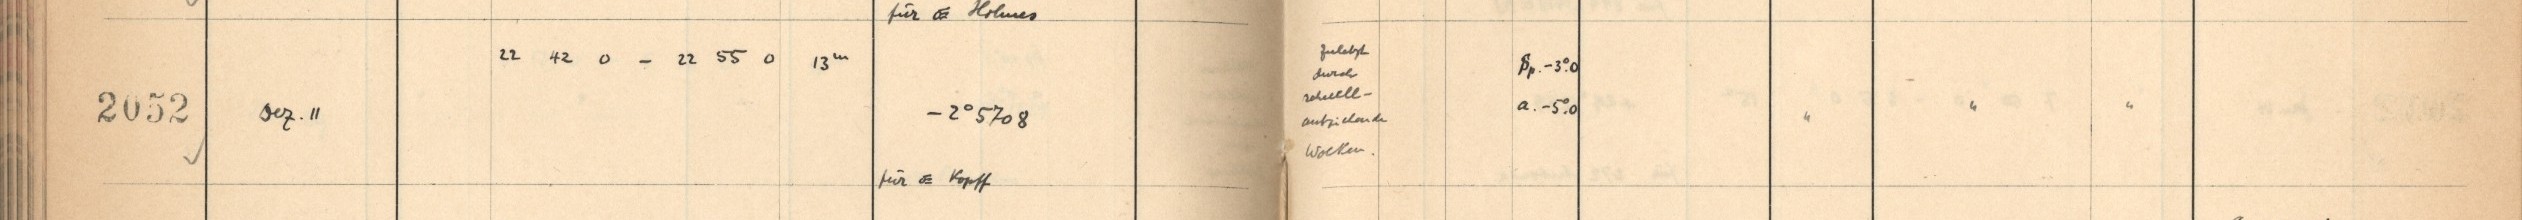 für ☄ Holmes
22 42 0 – 22 55 0 13ᵐ
2052 Dez. 11
-2°5708
für ☄ Kopff
zuletzt
durch
schnell-
aufziehende
Wolken.
p. -3°.0
a. -5°.0 " " "